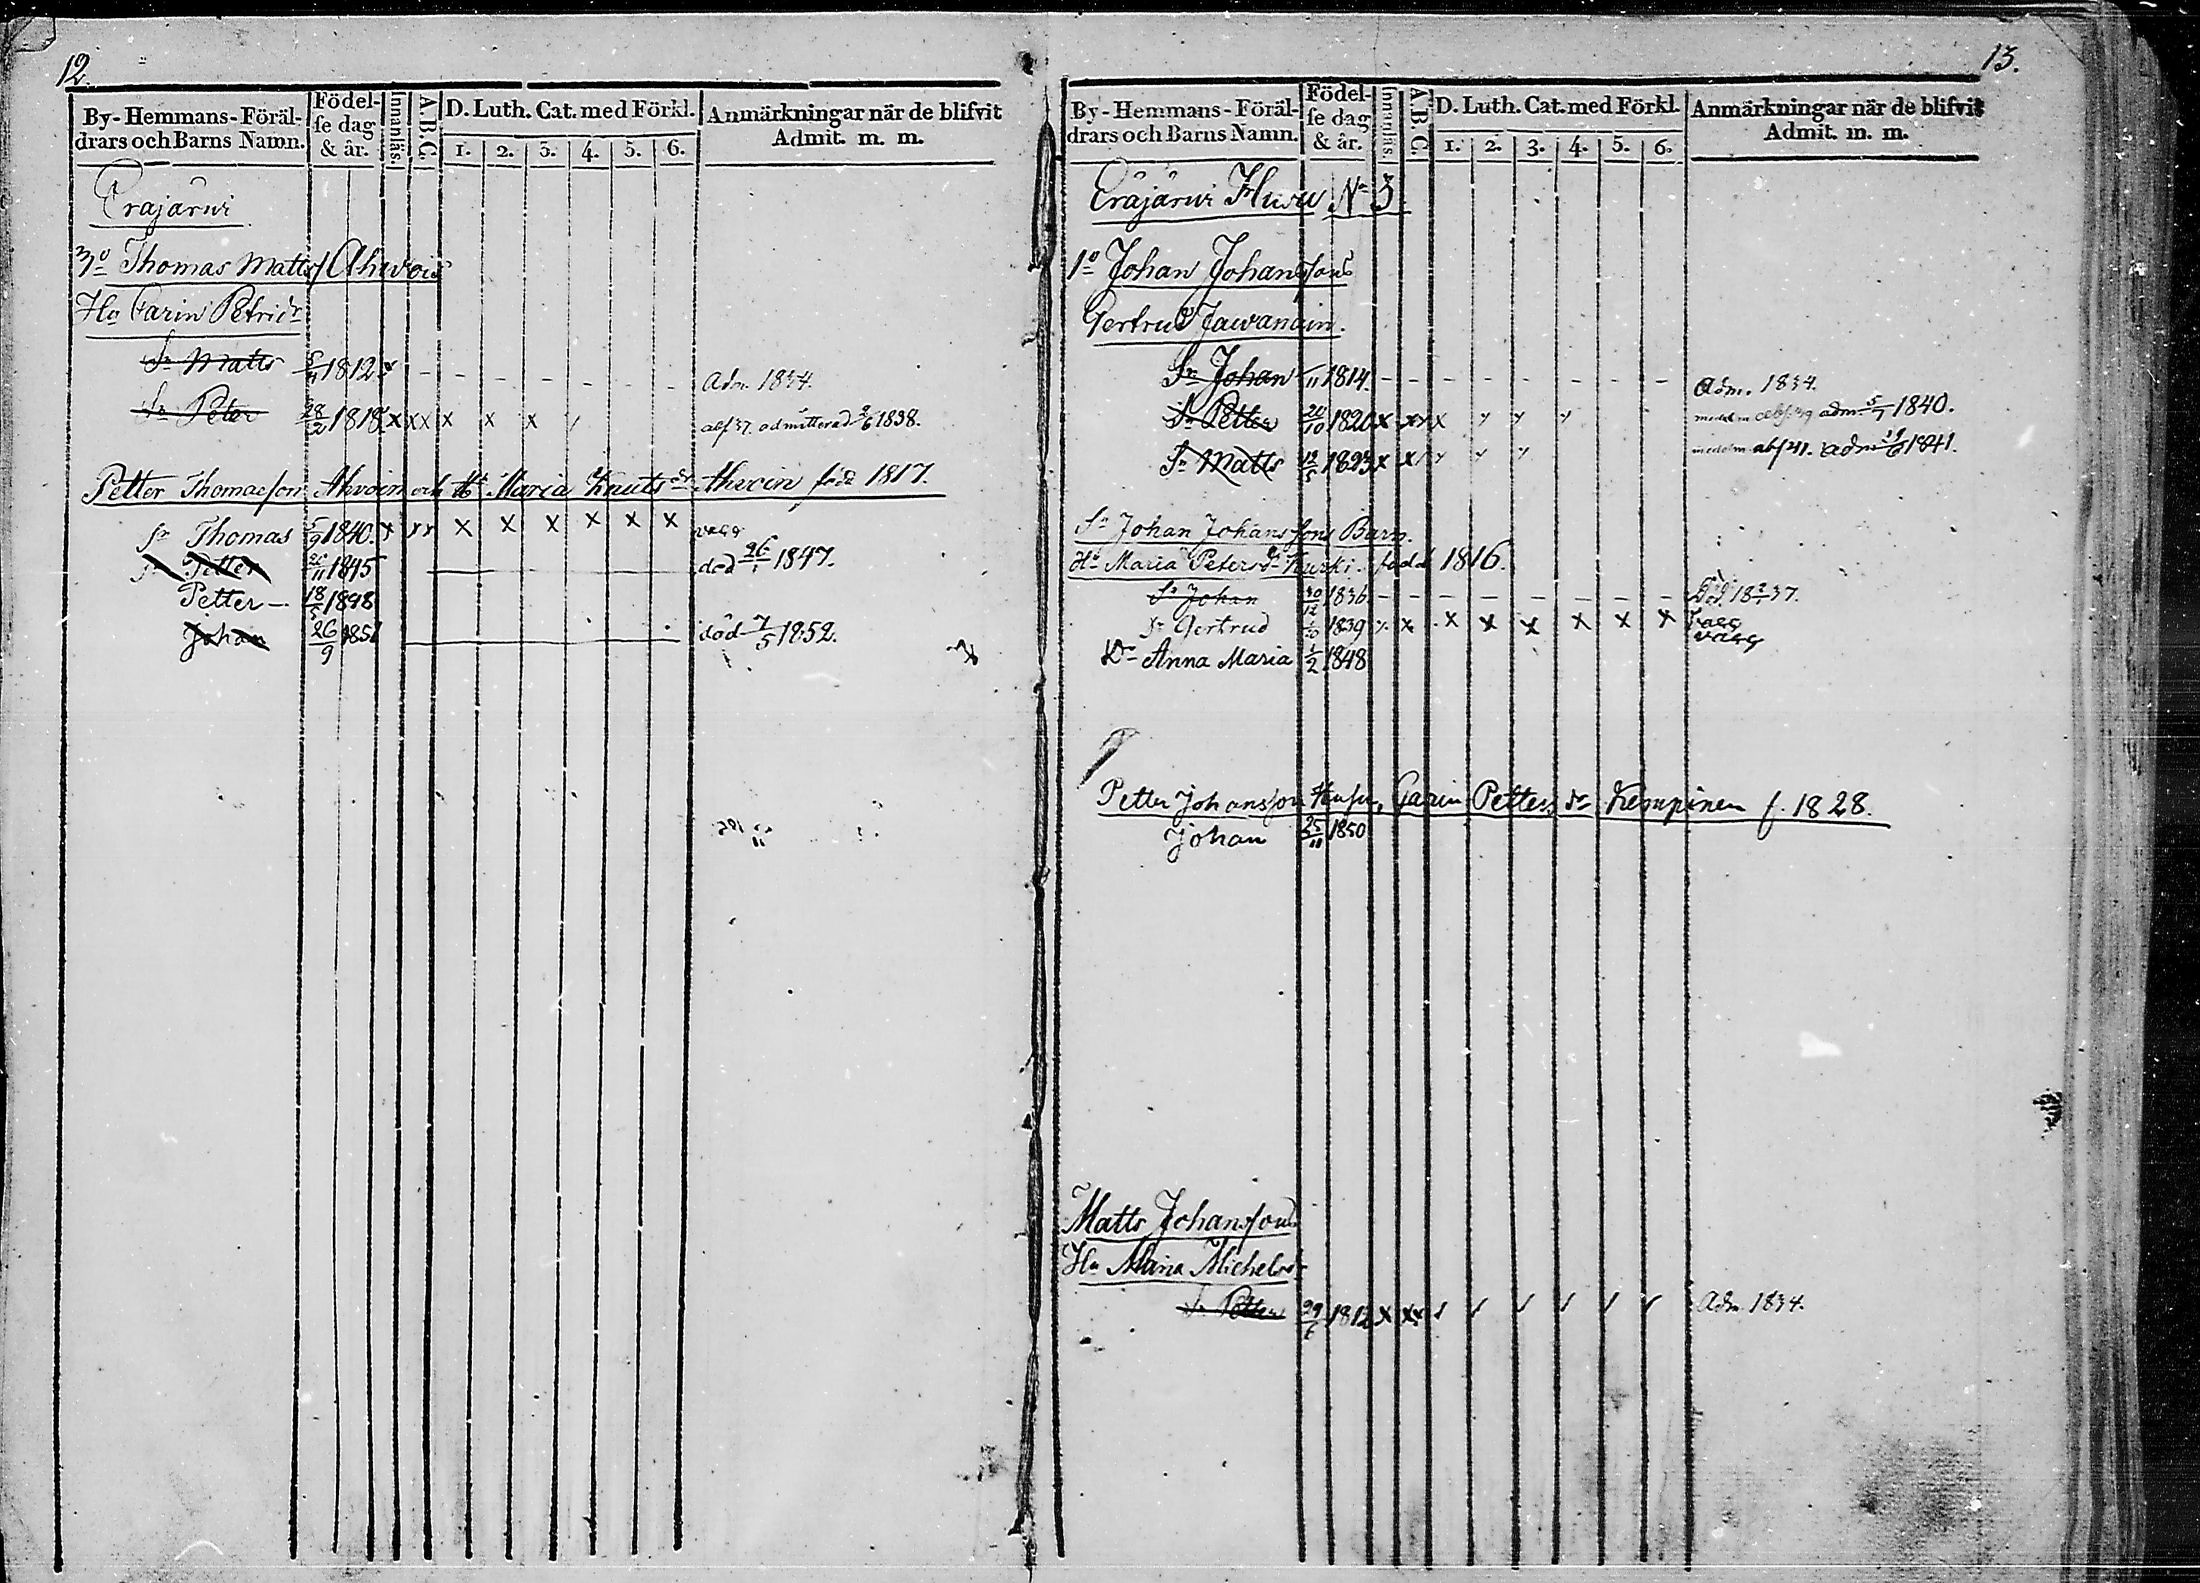 12.
By-Hemmans-Föräl-
drars och Barns Namn.
Födel-
se dag
& år.
Innanläs.
A.B.C.
D. Luth. Cat. med Förkl.
1. 2. 3. 4. 5. 6.
Anmärkningar när de blifvit
Admit. m. m.
Eräjärwi
3o Thomas Matts/ Ahvois
Hu Carin Petridr
Sn Matts 5/11 1812 x - - - - - - - Adm. 1834.
Sn Peter 28/2 1818 x xx x x x / admitterad 2/6 1838.
Petter Thomasson Ahvoin och Hu Maria Knutsdr Ahvoin född 1817.
Sn Thomas 5/9 1840. x xx x x x x x x vacc
Sn Petter 1845 död 26/1 1847.
Petter - 18/5 1848
Johan 26/9 1851 död 7/5 1852.
13.
By-Hemmans-Föräl-
drars och Barns Namn.
Födel-
se dag
& år.
Innanläs.
A.B.C.
D. Luth. Cat. med Förkl.
1. 2. 3. 4. 5. 6.
Anmärkningar när de blifvit
Admit. m. m.
Eräjärwi Huru No 3
1o Johan Johanssons
Gertrud Jawanain.
Sn Johan /11 1814. - - - - - - - - Adm. 1834.
Sn Petter 20/10 1820 x xx x adm. 5/7 1840.
Sn Matts 12/5 1823 x x adm 1841.
Sn Johan Johanssons Barn.
Hu Maria Petersdr Kurki. född 1816.
Sn Johan 30/12 1836 - - - - - - - - Död 18 2/1 37.
Dr Gertrud 1/10 1839 x x x x x x x x vacc
Dr Anna Maria 1/2 1848 vacc
Petter Johansson Huru, Carin Pettersdr Kemppinen f. 1828.
Johan 25/11 1850
Matts Johanssons
Hu Maria Michelsdr
Sn Petter 29/6 1812 x xx / / / / / / Adm. 1834.